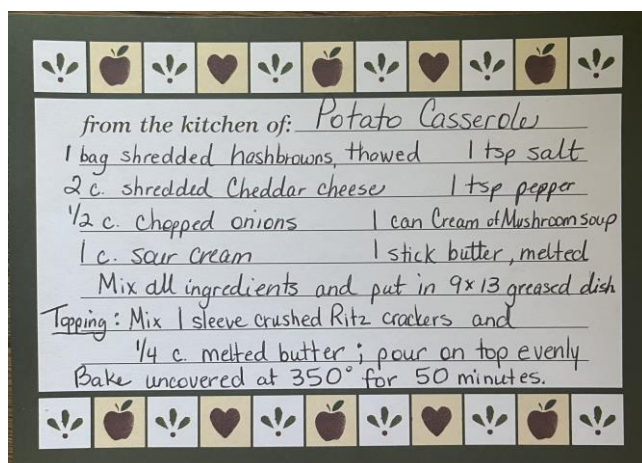 from the kitchen of: Potato Casserole
1 bag shredded hashbrowns, thawed 1 tsp salt
2 c. shredded Cheddar cheese 1 tsp pepper
1/2 c. chopped onions 1 can Cream of Mushroom soup
1 c. sour cream 1 stick butter, melted
Mix all ingredients and put in 9x13 greased dish
Topping: Mix 1 sleeve crushed Ritz crackers and
1/4 c. melted butter; pour on top evenly
Bake uncovered at 350° for 50 minutes.